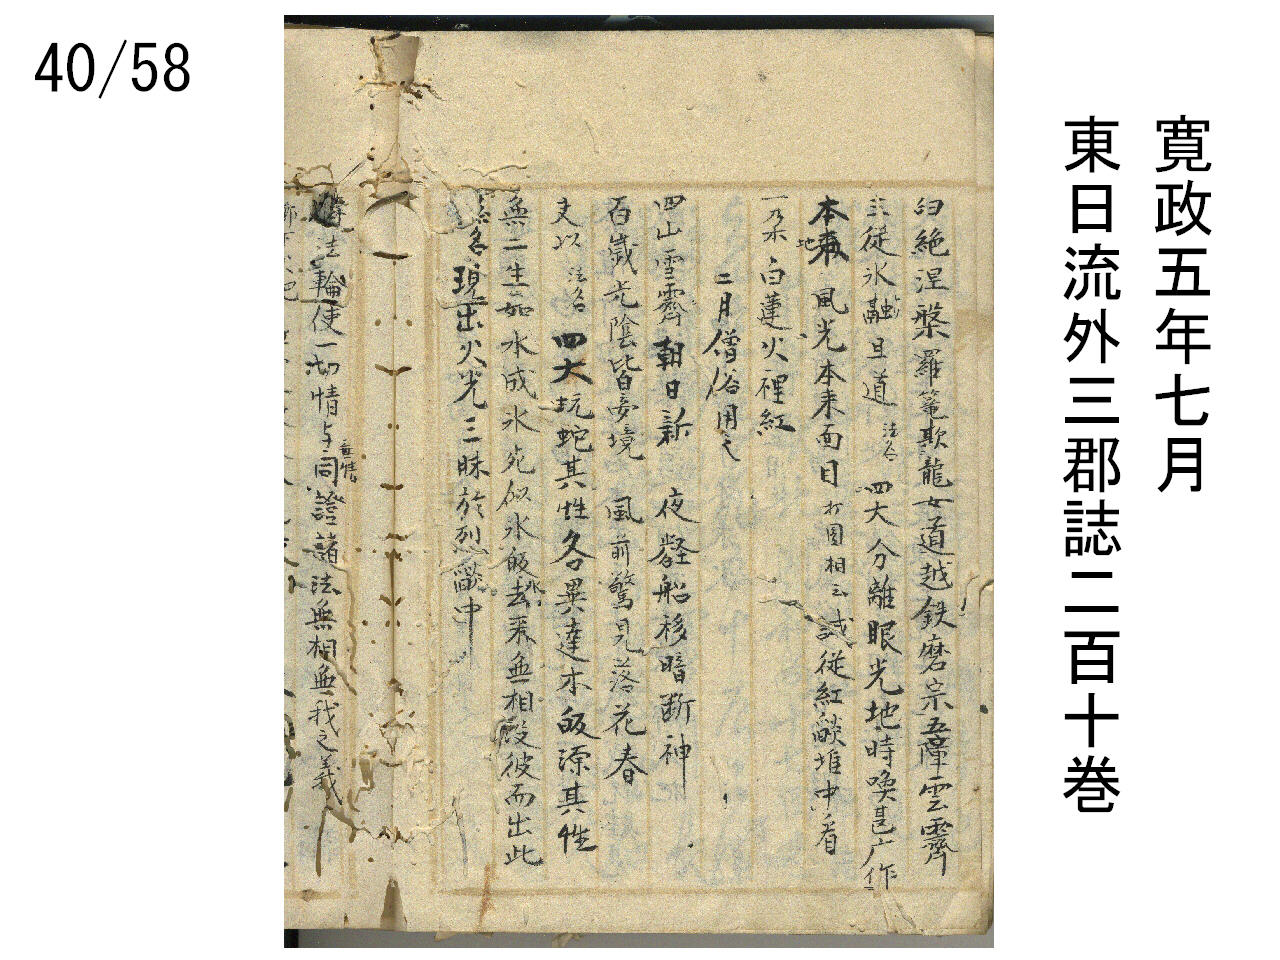 40/58
寛政五年七月
東日流外三郡誌二百十巻
臼絶涅槃羅篭欺龍女道越鉄磨宗五障雲霽
三従氷融且道 法名 四大分離眼光地時喚甚广作
本来地風光本来面目 打圓相云 試従紅燄堆中看
一朶白蓮火裡紅
二月僧俗用之
四山雪霽朝日新 夜壑船移暗断神
百歳光陰皆夢境 風前驚見落花春
夫以 法名 四大玩蛇其性各異達本皈源其性
無二生如水成氷死似氷皈去来無相段彼而出此
名現出火光三昧於烈燄中
法輪使一切情与無情同證諸法無相無我之義